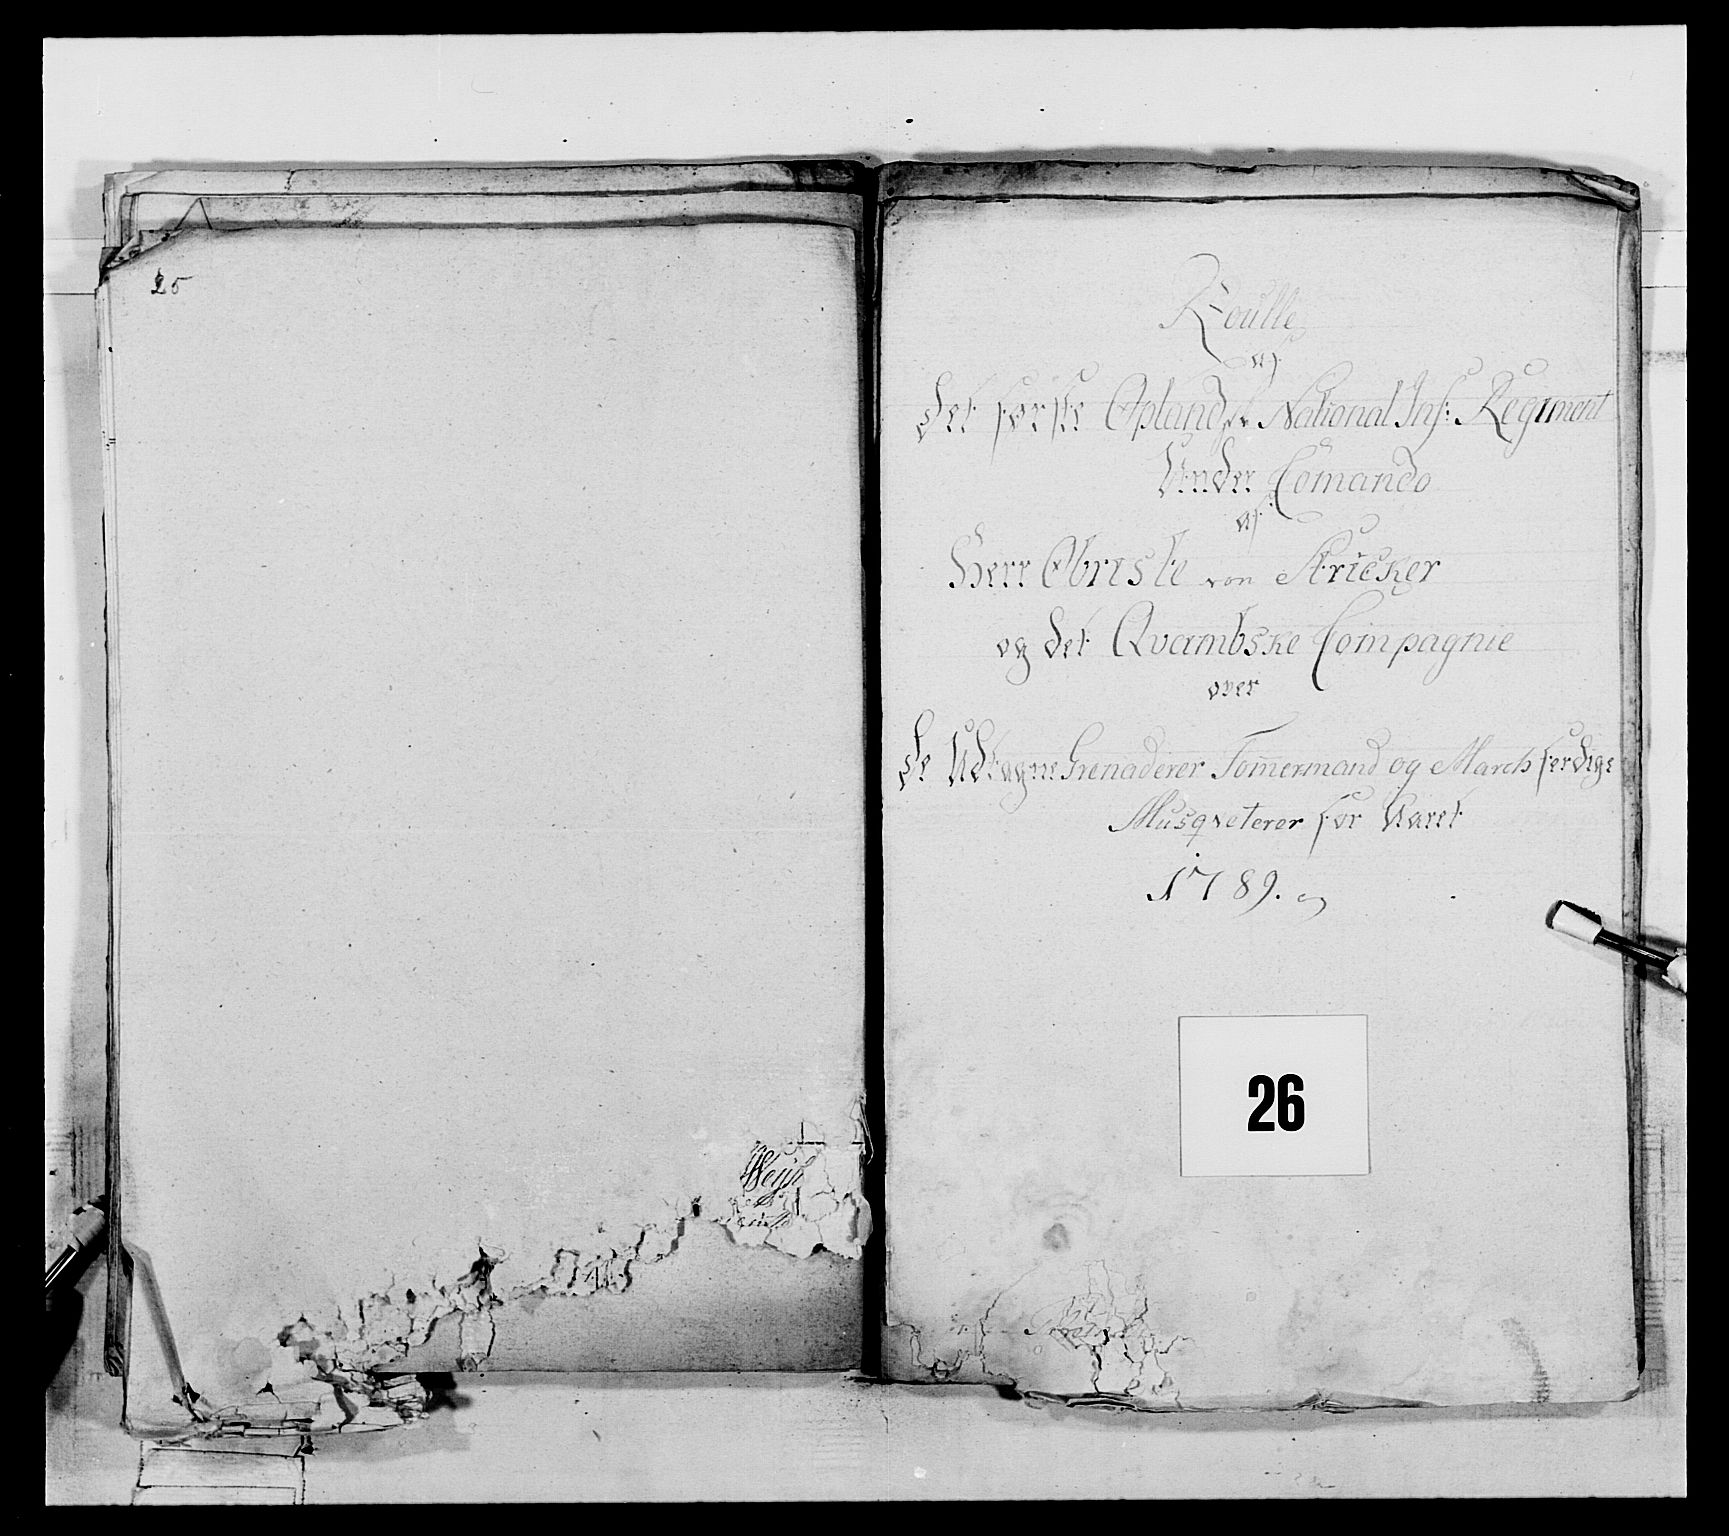 25
Roulle
af
det første Oplandske National Inf: Regiment
Under Comando
af
Herr Obriste von Stricker
og det Qvambske Compagnie
over
de Udtagne Grenaderer Tom̄ermand og March færdige
Musqveterer for Aaret
1789.
26